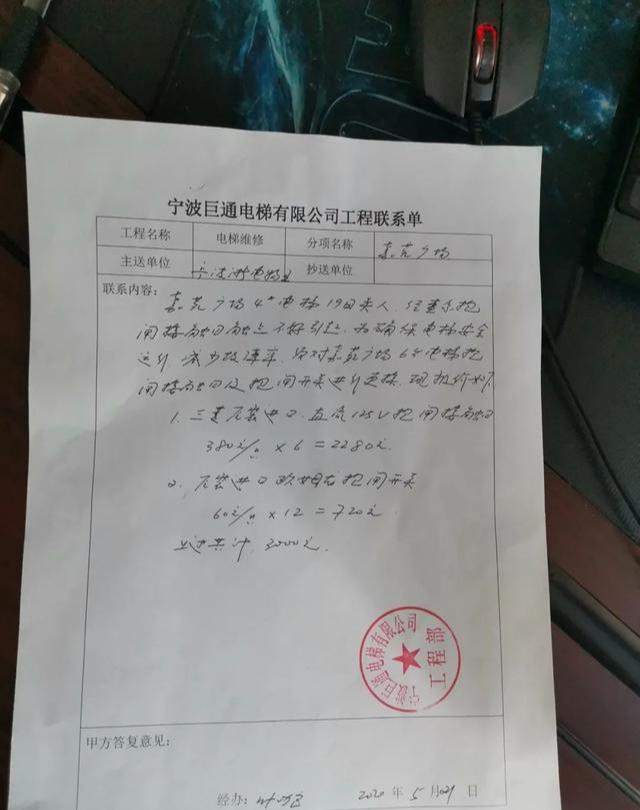 宁波巨通电梯有限公司工程联系单
工程名称 电梯维修 分项名称 嘉苑广场
主送单位 抄送单位
联系内容: 嘉苑广场4#电梯19日关人,经查系抱
闸接触口触点不好引起,为确保电梯安全
运行,减少故障率,需对嘉苑广场6台电梯抱
闸接触口及抱闸开关进行更换,现报价如下
1. 三菱原装进口,直流125V抱闸接触口
380元/只 x 6 = 2280元
2. 原装进口欧姆龙抱闸开关
60元/只 x 12 = 720元
上述共计 3000元
宁波巨通电梯有限公司
工程部
甲方答复意见:
经办: 2020年5月21日